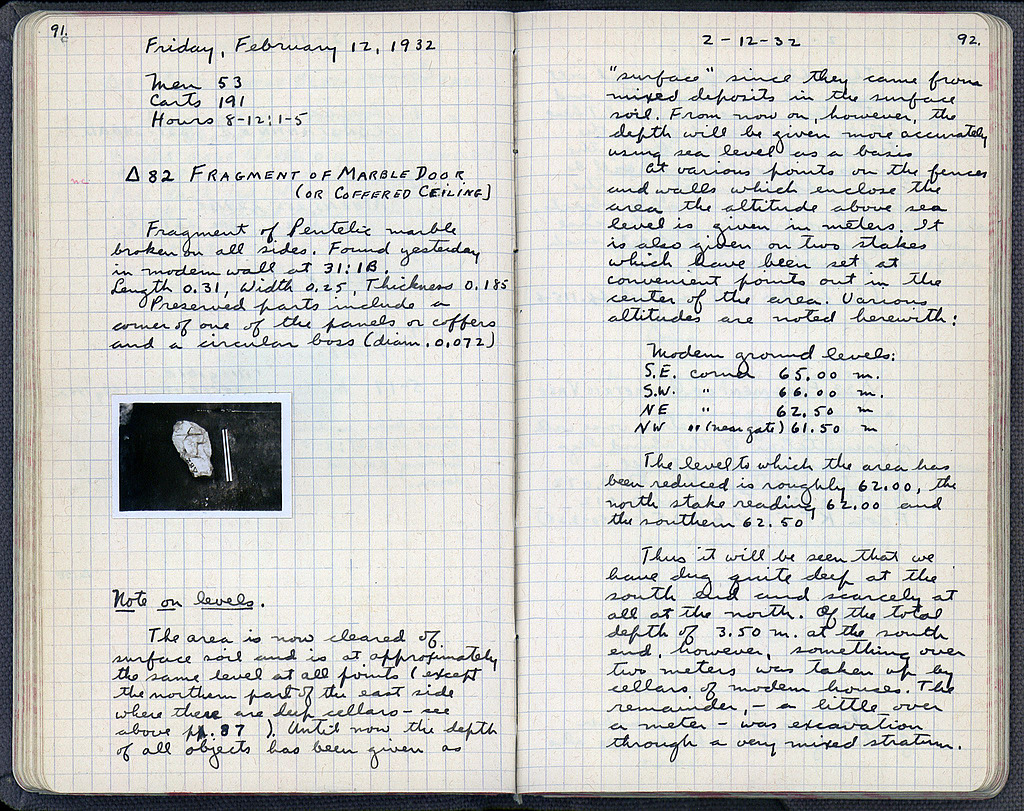 91.
Friday, February 12, 1932
Men 53
Carts 191
Hours 8-12; 1-5
nc
Δ 82 FRAGMENT OF MARBLE DOOR
(OR COFFERED CEILING)
Fragment of Pentelic marble
broken on all sides. Found yesterday
in modern wall at 31:1B.
Length 0.31, Width 0.25, Thickness 0.185
Preserved parts include a
corner of one of the panels or coffers
and a circular boss (diam. 0.072)
Note on levels.
The area is now cleared of
surface soil and is at approximately
the same level at all points (except
the northern part of the east side
where there are deep cellars - see
above pp. 87 ). Until now the depth
of all objects has been given as
2-12-32
92.
"surface" since they came from
mixed deposits in the surface
soil. From now on, however, the
depth will be given more accurately
using sea level as a basis
At various points on the fences
and walls which enclose the
area the altitude above sea
level is given in meters. It
is also given on two stakes
which have been set at
convenient points out in the
center of the area. Various
altitudes are noted herewith:
Modern ground levels:
S.E. corner 65.00 m.
S.W. " 66.00 m.
NE " 62.50 m
NW " (near gate) 61.50 m
The level to which the area has
been reduced is roughly 62.00, the
north stake reading 62.00 and
the southern 62.50
Thus it will be seen that we
have dug quite deep at the
south end and scarcely at
all at the north. Of the total
depth of 3.50 m. at the south
end, however, something over
two meters was taken up by
cellars of modern houses. The
remainder, - a little over
a meter - was excavation
through a very mixed stratum.